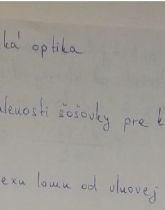 ká optika
alenosti šošovky pre k
exu lomu od vlnovej